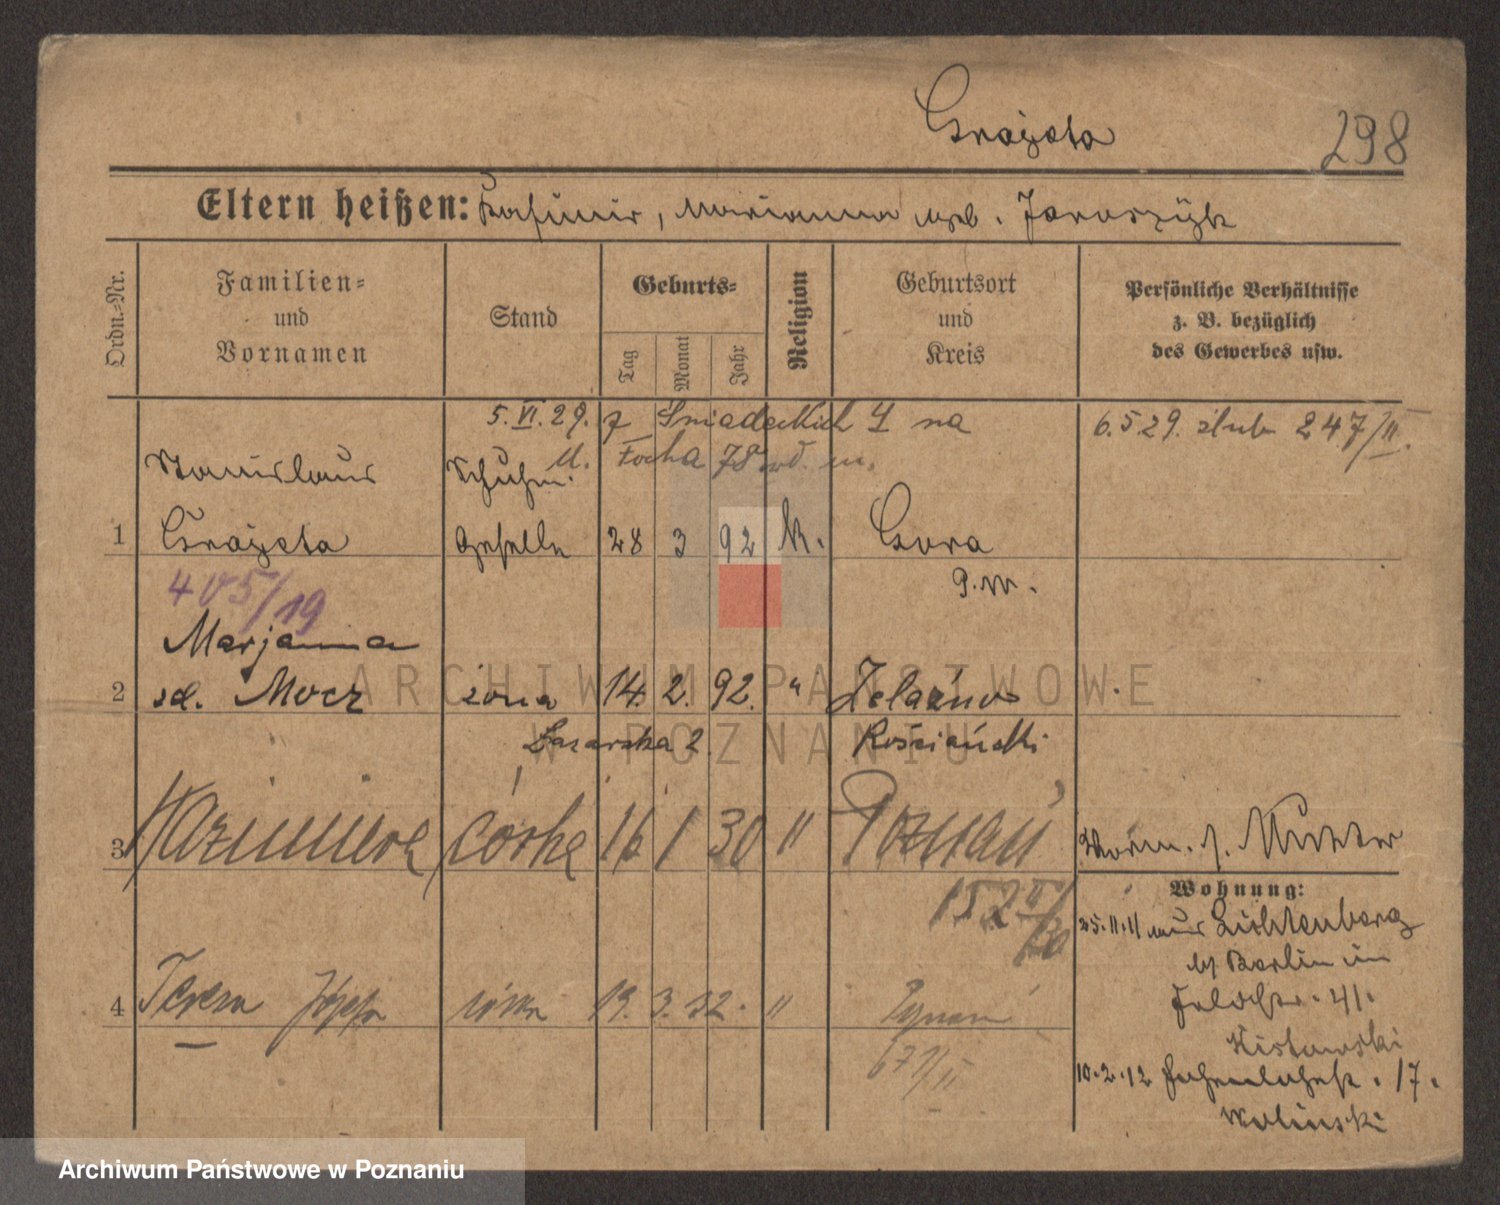 Grajeta
298
Eltern heißen: Kasimir, Marianna geb. Jaroszyk
Ordn.-Nr.
Familien-
und
Vornamen
Stand
Geburts-
Tag
Monat
Jahr
Religion
Geburtsort
und
Kreis
Persönliche Verhältnisse
z. B. bezüglich
des Gewerbes usw.
5.VI.29. z Śniadeckich 4 na
6.5.29. ślub 247/II.
Focha 78
Stanislaus
Schuhm.
1
Grajeta
Geselle
28
3
92
k.
Gora
405/19
Marjanna
2
Mocz
żona
14.
2.
92.
"
Żelazno
Łazarska 2.
Kościański
3
Kazimiera
córka
16
1
30
"
Poznań
Mutter
152 II/30
Wohnung:
25.11.11 aus Lichtenberg
b/ Berlin
4
Teresa Józefa
córka
19.
3.
32.
"
41.
671/II
10.2.12
17.
Wolinski
ARCHIWUM PAŃSTWOWE
W POZNANIU
Archiwum Państwowe w Poznaniu